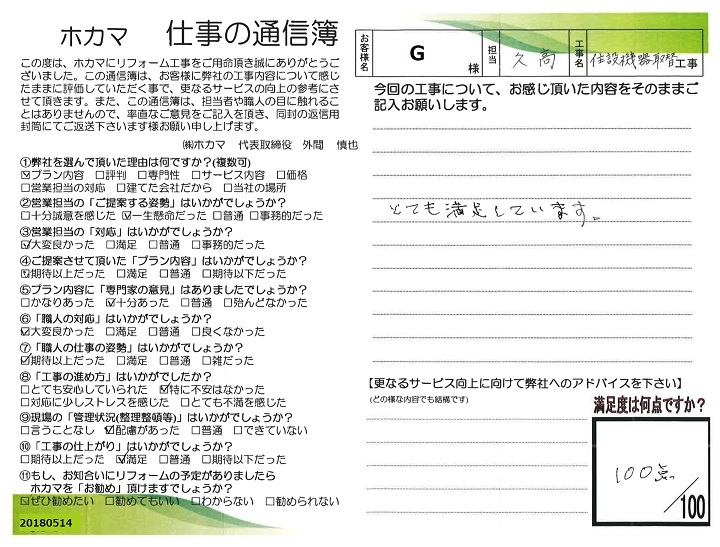 ホカマ 仕事の通信簿
この度は、ホカマにリフォーム工事をご用命頂き誠にありがとうご
ざいました。この通信簿は、お客様に弊社の工事内容について感じ
たままに評価していただく事で、更なるサービスの向上の参考にさ
せて頂きます。また、この通信簿は、担当者や職人の目に触れるこ
とはありませんので、率直なご意見をご記入を頂き、同封の返信用
封筒にてご返送下さいます様お願い申し上げます。
㈱ホカマ 代表取締役 外間 慎也
①弊社を選んで頂いた理由は何ですか?(複数可)
☑プラン内容 □評判 □専門性 □サービス内容 □価格
□営業担当の対応 □建てた会社だから □当社の場所
②営業担当の「ご提案する姿勢」はいかがでしょうか?
□十分誠意を感じた ☑一生懸命だった □普通 □事務的だった
③営業担当の「対応」はいかがでしょうか?
☑大変良かった □満足 □普通 □事務的だった
④ご提案させて頂いた「プラン内容」はいかがでしょうか?
☑期待以上だった □満足 □普通 □期待以下だった
⑤プラン内容に「専門家の意見」はありましたでしょうか?
□かなりあった ☑十分あった □普通 □殆んどなかった
⑥「職人の対応」はいかがでしょうか?
☑大変良かった □満足 □普通 □良くなかった
⑦「職人の仕事の姿勢」はいかがでしょうか?
☑期待以上だった □満足 □普通 □雑だった
⑧「工事の進め方」はいかがでしたか?
□とても安心していられた ☑特に不安はなかった
□対応に少しストレスを感じた □とても不満を感じた
⑨現場の「管理状況(整理整頓等)」はいかがでしょうか?
□言うことなし ☑配慮があった □普通 □できていない
⑩「工事の仕上がり」はいかがでしょうか?
□期待以上だった ☑満足 □普通 □期待以下だった
⑪もし、お知合いにリフォームの予定がありましたら
ホカマを「お勧め」頂けますでしょうか?
☑ぜひ勧めたい □勧めてもいい □わからない □勧められない
20180514
お客様名 G 様 担当 久高 工事名 住設機器取替工事
今回の工事について、お感じ頂いた内容をそのままご
記入お願いします。
とても満足しています。
【更なるサービス向上に向けて弊社へのアドバイスを下さい】
(どの様な内容でも結構です)
満足度は何点ですか?
100点
/100